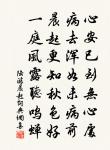 心安已到無心處
病去渾如未病前
晨起更知秋色好
一庭風露聽鳴蟬
陸游晨起詞典網書